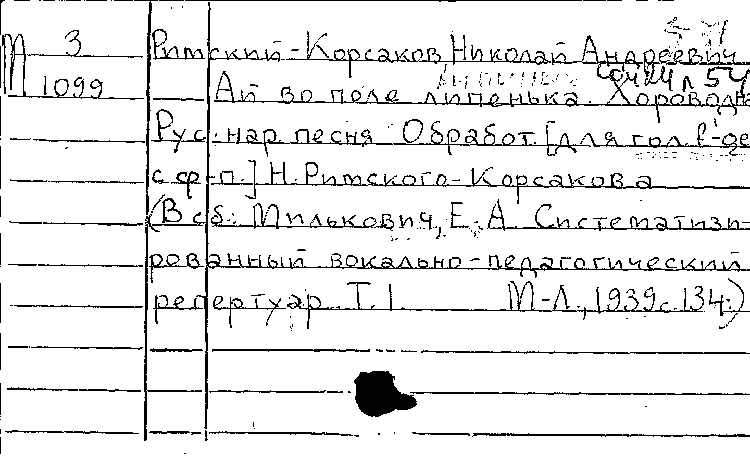 3
М 1099
Римский-Корсаков, Николай Андреевич
Ай во поле липенька. Хороводна
Рус. нар. песня Обработ. [для гол. f-де
с ф-п.] Н. Римского-Корсакова
(В сб.: Милькович, Е. А. Систематизи-
рованный вокально-педагогический
репертуар Т. 1. М-Л., 1939 с. 134.)